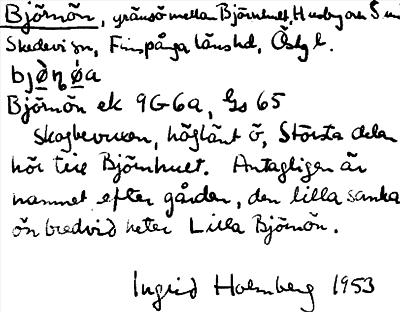 Björnön, gränsö mellan Björnhult, Husby och S
Skedevi sn, Finspånga länshd, Östg l.
bjø̀ṇø̀a
Björnön ek 9G6a, Gs 65
Skogbevuxen, höglänt ö, Största delen
hör till Björnhult. Antagligen är
namnet efter gården, den lilla sanka
ön bredvid heter Lilla Björnön.
Ingrid Holmberg 1953